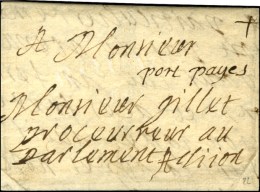 A Monsieur
port payes
Monsieur gillet
proceurreur au
parlement A diion